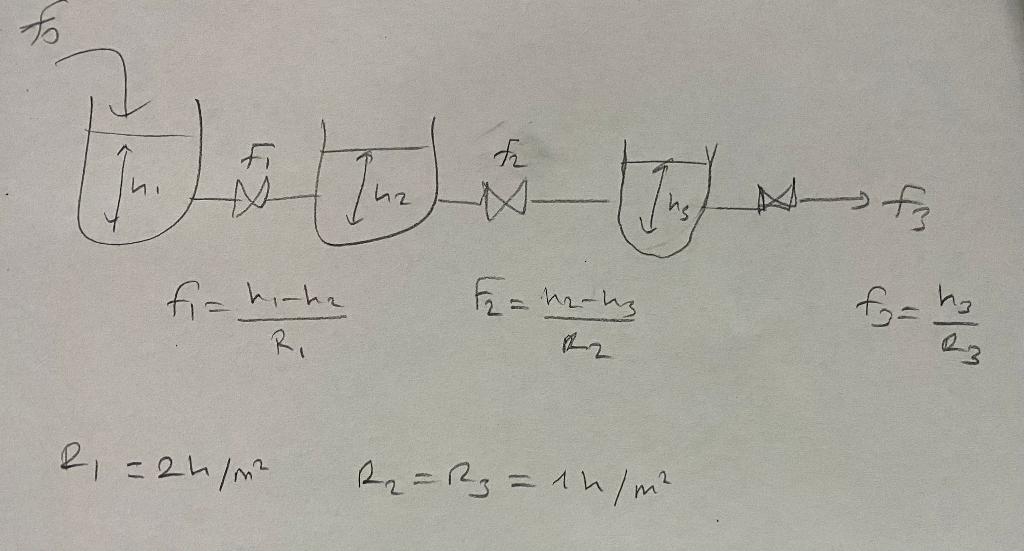 f0
f1 f2
h1 h2 h3 f3
f1 = h1-h2 / R1 F2 = h2-h3 / R2 f3 = h3 / R3
R1 = 2h/m² R2 = R3 = 1h/m²